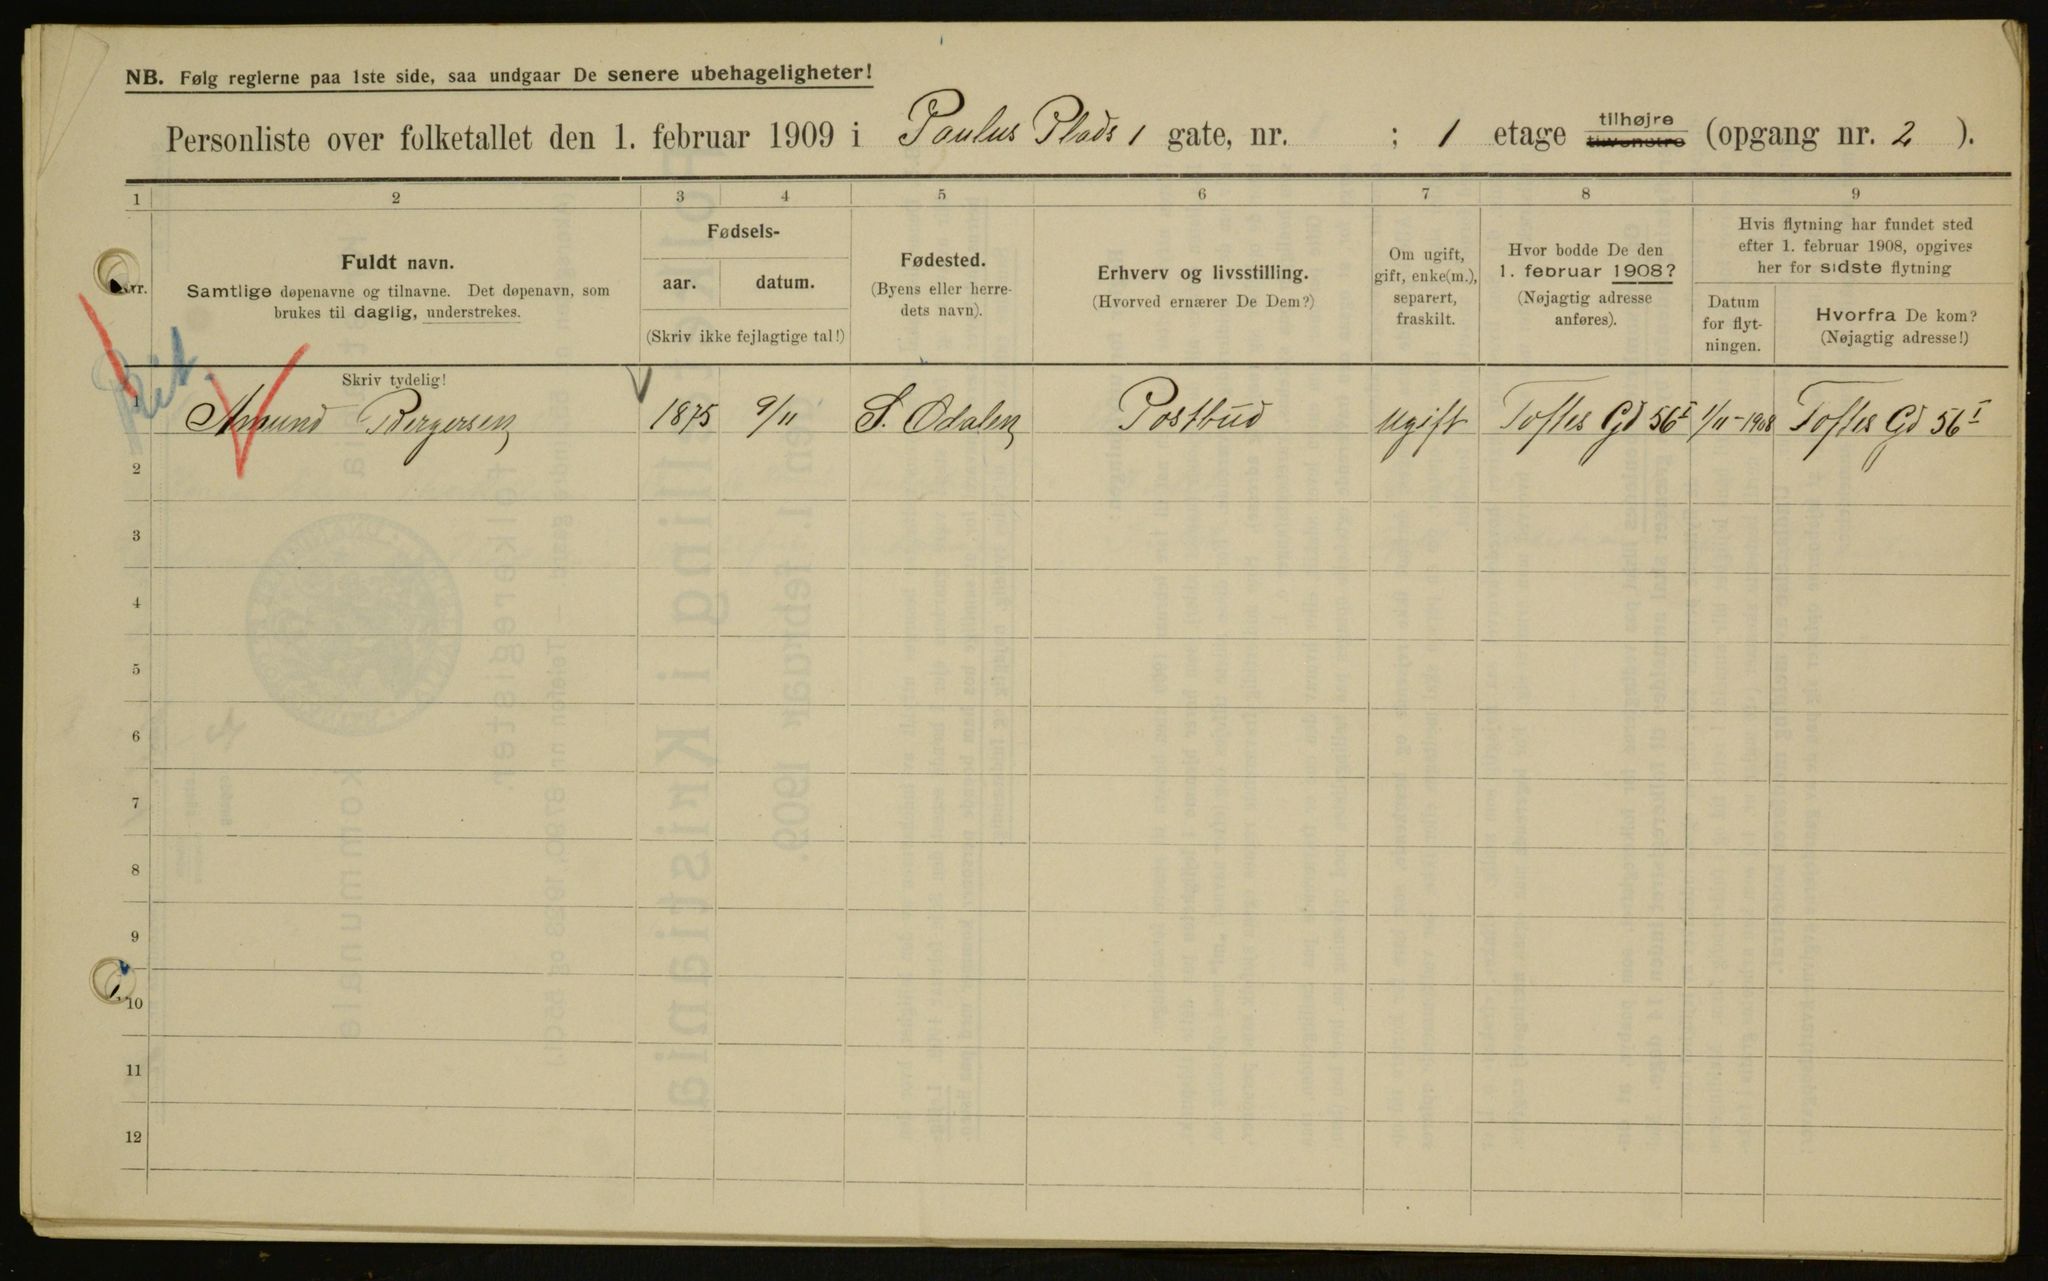 NB. Følg reglerne paa 1ste side, saa undgaar De senere ubehageligheter!
Personliste over folketallet den 1. februar 1909 i Paulus Plads 1 gate, nr. ; 1 etage tilhøjre tilvenstre (opgang nr. 2 ).
1 2 3 4 5 6 7 8 9
Nr.
Fuldt navn.
Samtlige døpenavne og tilnavne. Det døpenavn, som
brukes til daglig, understrekes.
Fødsels-
aar. datum.
(Skriv ikke fejlagtige tal!)
Fødested.
(Byens eller herre-
dets navn).
Erhverv og livsstilling.
(Hvorved ernærer De Dem?)
Om ugift,
gift, enke(m.),
separert,
fraskilt.
Hvor bodde De den
1. februar 1908?
(Nøjagtig adresse
anføres).
Hvis flytning har fundet sted
efter 1. februar 1908, opgives
her for sidste flytning
Datum
for flyt-
ningen.
Hvorfra De kom?
(Nøjagtig adresse!)
Skriv tydelig!
1 Amund Bergersen 1875 9/11 S. Odalen Postbud Ugift Toftes Gd 56 I 1/11-1908 Toftes Gd 56 I
2
3
4
5
6
7
8
9
10
11
12